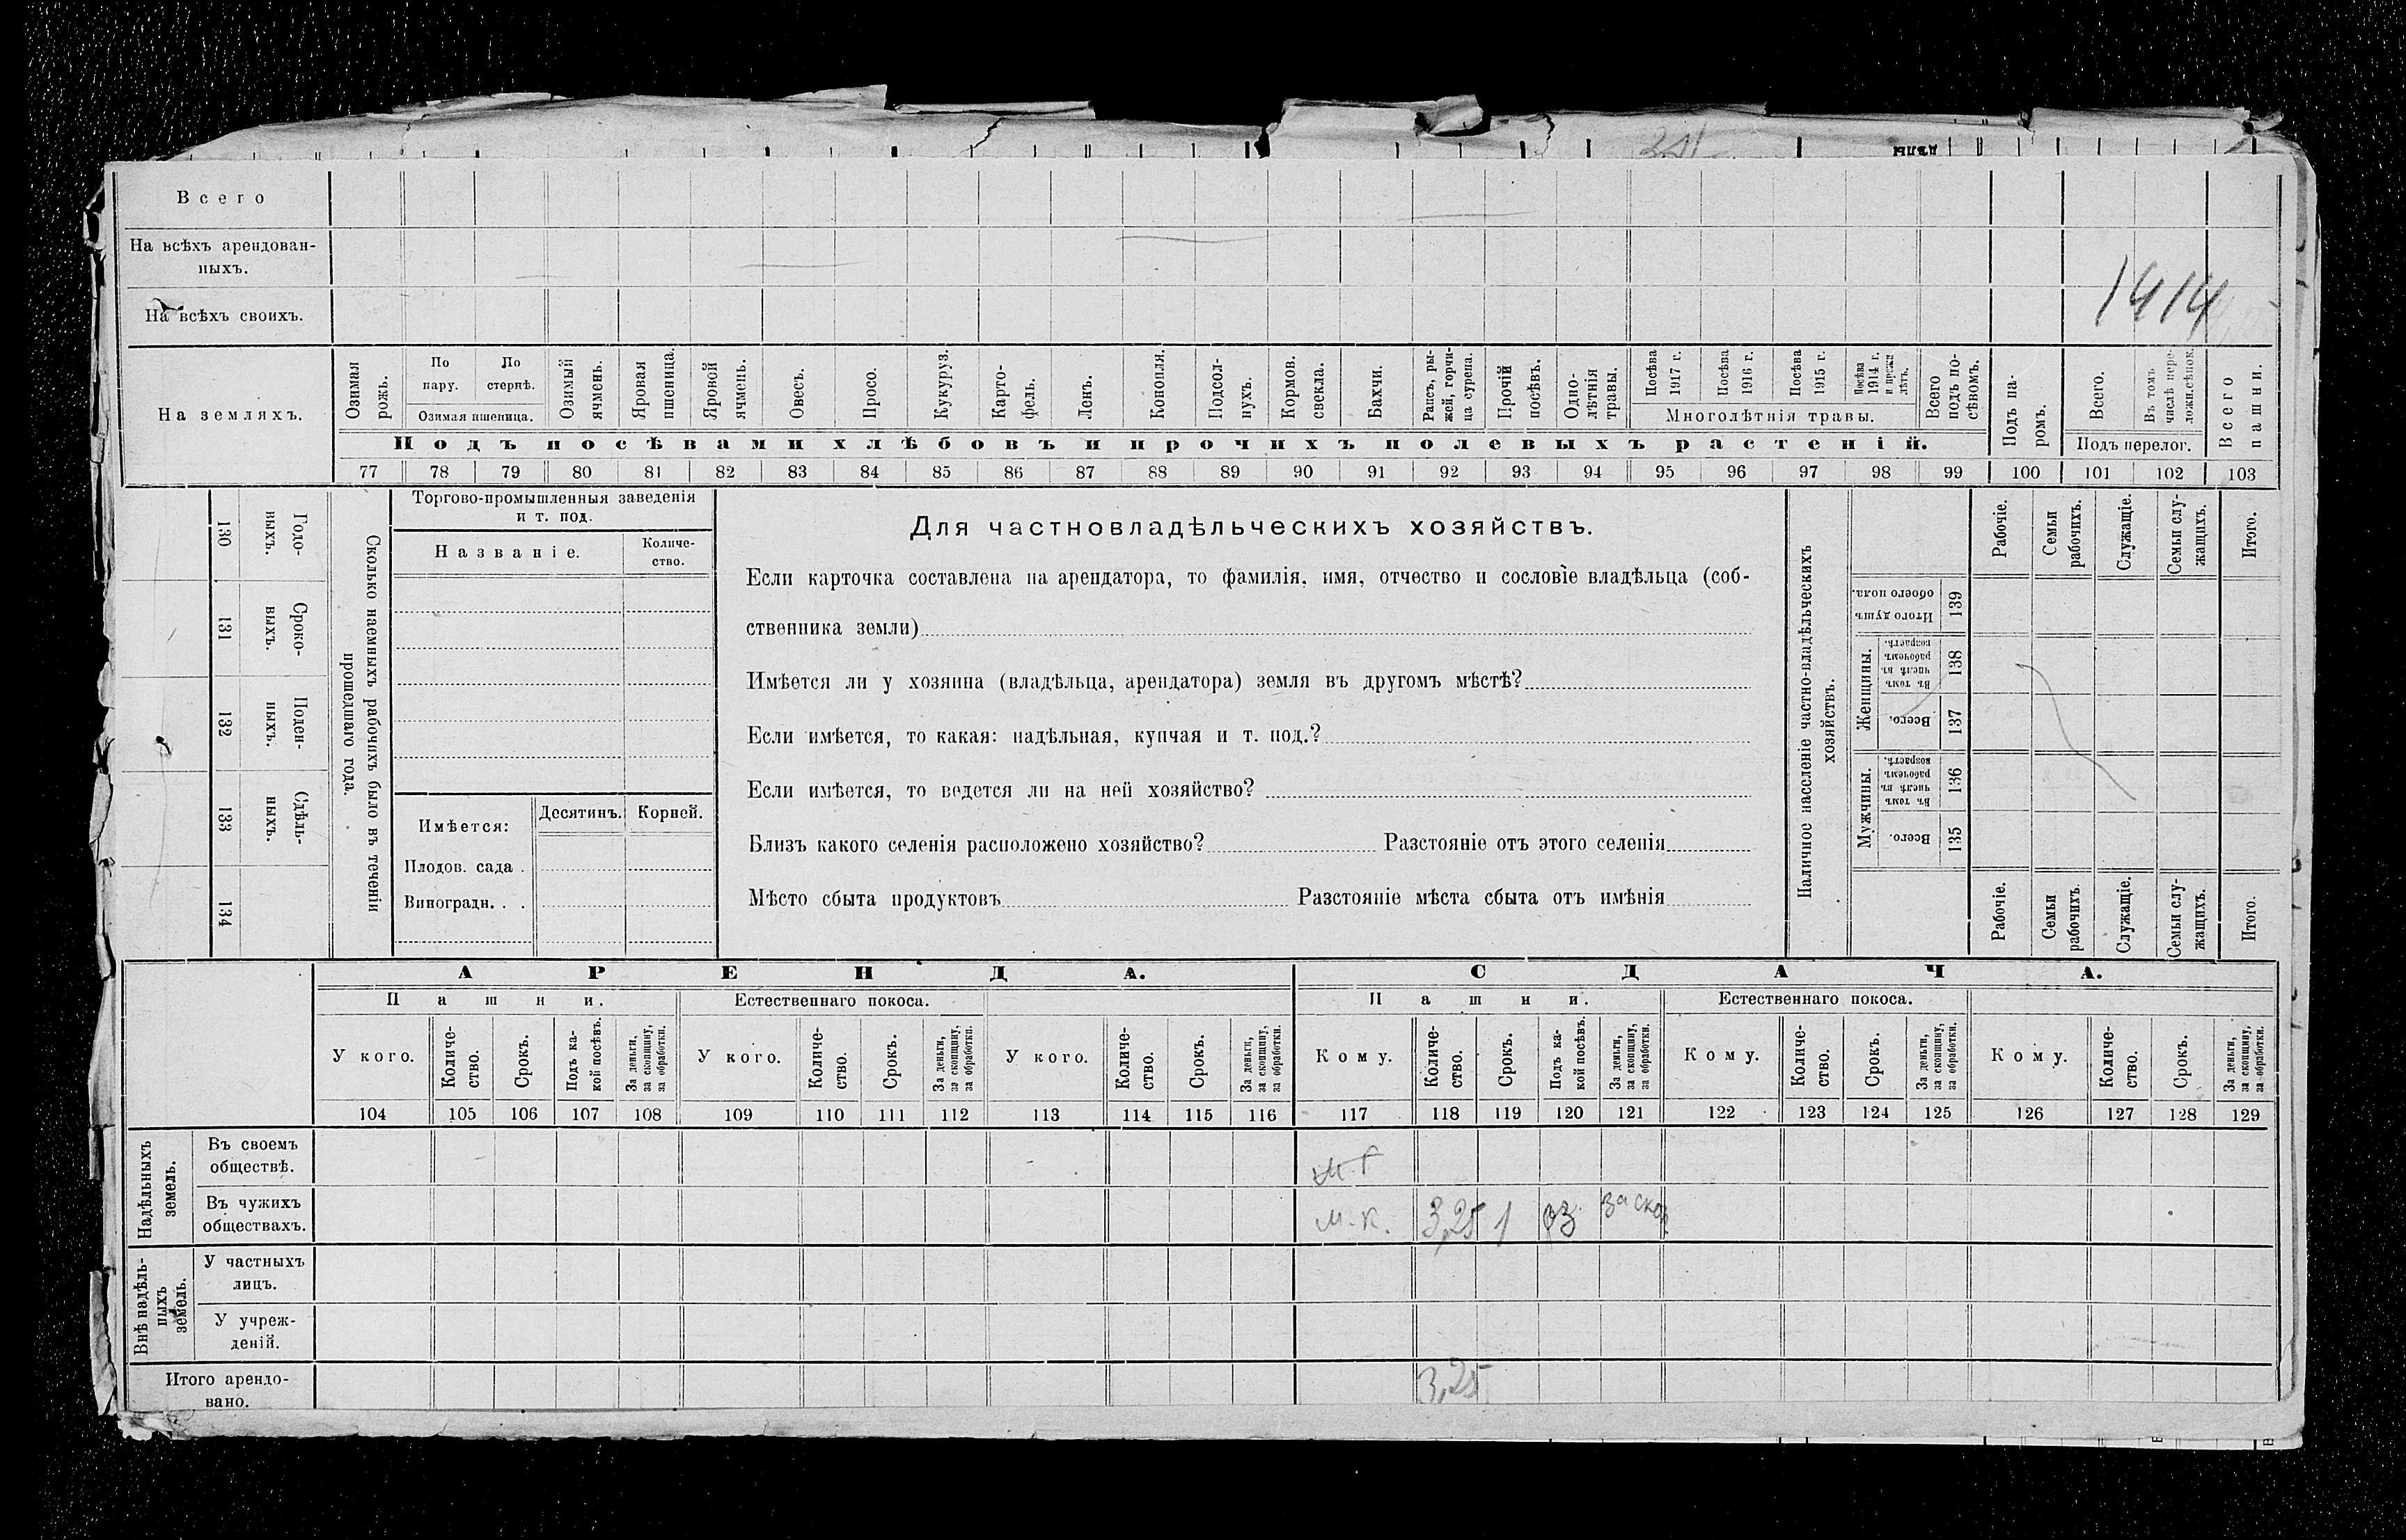 Всего
На всѣхъ арендован-
ныхъ.
На всѣхъ своихъ.
1914
На земляхъ.
Озимая рожь.
По пару.
По стернѣ.
Озимая пшеница.
Озимый ячмень.
Яровая пшеница.
Яровой ячмень.
Овесъ.
Просо.
Кукуруз.
Карто-
фель.
Ленъ.
Конопля.
Подсол-
нухъ.
Кормов.
свекла.
Бахчи.
Рапсъ, ры-
жей, горчи-
ца сурепа.
Прочій посѣвъ.
Одно-
лѣтнія травы.
Посѣва 1917 г.
Посѣва 1916 г.
Посѣва 1915 г.
Посѣва 1914 г. и прежн. лѣтъ.
Многолѣтнія травы.
Всего подъ по-
сѣвомъ.
Подъ па-
ромъ.
Всего.
Въ томъ числѣ пере-
ложн.сѣнок.
Подъ перелог.
Всего пашни.
Подъ посѣвами хлѣбовъ и прочихъ полевыхъ растеній.
77 78 79 80 81 82 83 84 85 86 87 88 89 90 91 92 93 94 95 96 97 98 99 100 101 102 103
130 Годо-
выхъ.
131 Сроко-
выхъ.
132 Поден-
ныхъ.
133 Сдѣль-
ныхъ.
134
Сколько наемныхъ рабочихъ было въ теченіи
прошедшаго года.
Торгово-промышленныя заведенія
и т. под.
Названіе.
Количе-
ство.
Имѣется:
Десятинъ.
Корней.
Плодов. сада .
Виноградн. . .
Для частновладѣльческихъ хозяйствъ.
Если карточка составлена на арендатора, то фамилія, имя, отчество и сословіе владѣльца (соб-
ственника земли)
Имѣется ли у хозяина (владѣльца, арендатора) земля въ другомъ мѣстѣ?
Если имѣется, то какая: надѣльная, купчая и т. под.?
Если имѣется, то ведется ли на ней хозяйство?
Близъ какого селенія расположено хозяйство? Разстояніе отъ этого селенія
Мѣсто сбыта продуктовъ Разстояніе мѣста сбыта отъ имѣнія
Наличное населеніе частно-владѣльческихъ
хозяйствъ.
Рабочіе.
Семьи рабочихъ.
Служащіе.
Семьи слу-
жащихъ.
Итого.
Итого душъ обоего пола.
139
Женщины.
Въ томъ числѣ въ рабочемъ возрастѣ.
138
Всего.
137
Мужчины.
Въ томъ числѣ въ рабочемъ возрастѣ.
136
Всего.
135
Рабочіе.
Семьи рабочихъ.
Служащіе.
Семьи слу-
жащихъ.
Итого.
АРЕНДА.
СДАЧА.
Пашни.
Естественнаго покоса.
Пашни.
Естественнаго покоса.
У кого.
Количе-
ство.
Срокъ.
Подъ ка-
кой посѣвъ.
За деньги, за скопщину, за обработки.
У кого.
Количе-
ство.
Срокъ.
За деньги, за скопщину, за обработки.
У кого.
Количе-
ство.
Срокъ.
За деньги, за скопщину, за обработки.
Кому.
Количе-
ство.
Срокъ.
Подъ ка-
кой посѣвъ.
За деньги, за скопщину, за обработки.
Кому.
Количе-
ство.
Срокъ.
За деньги, за скопщину, за обработки.
Кому.
Количе-
ство.
Срокъ.
За деньги, за скопщину, за обработки.
104 105 106 107 108 109 110 111 112 113 114 115 116 117 118 119 120 121 122 123 124 125 126 127 128 129
Надѣльныхъ земель.
Въ своемъ
обществѣ.
Въ чужихъ
обществахъ.
м.к. 3,25 1 оз за скоп.
Внѣ надѣль-
ныхъ земель.
У частныхъ
лицъ.
У учреж-
деній.
Итого арендо-
вано.
3,25